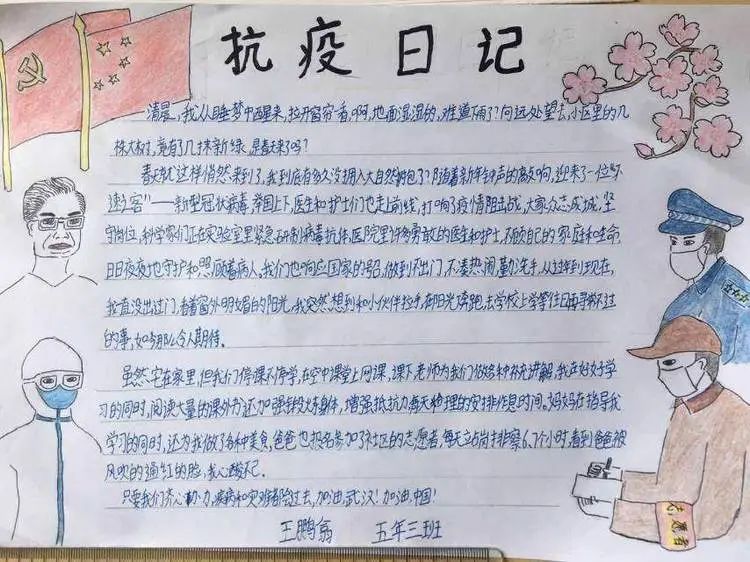 抗疫日记
清晨，我从睡梦中醒来，拉开窗帘看，啊，地面湿湿的，难道下雨了？向远处望去，小区里的几
株大树，竟有了几抹新绿，是春天来了吗？
春天就这样悄然来到了，我到底有多久没拥入大自然的怀抱了？随着新年钟声的敲响，迎来了一位“不
速之客”——新型冠状病毒，举国上下，医生和护士们也走上前线，打响了疫情阻击战，大家众志成城，坚
守岗位，科学家们正在实验室里紧急研制病毒抗体，医院里许多勇敢的医生和护士，不顾自己的家庭和生命，
日日夜夜地守护和照顾着病人，我们也响应国家的号召，做到不出门，不凑热闹，勤洗手，从过年到现在，
我一直没出过门，看着窗外明媚的阳光，我突然想到和小伙伴拉手，在阳光下奔跑，去学校上学等往日再寻常不过
的事，如今那么令人期待。
虽然宅在家里，但我们停课不停学，在空中课堂上网课，课下老师为我们做多种补充讲解，我在好好学
习的同时，阅读大量的课外书还加强锻炼身体，增强抵抗力每天梳理的安排作息时间。妈妈在指导我
学习的同时，还为我做了各种美食，爸爸也报名参加了社区的志愿者，每天立岗排察6、7个小时，看到爸爸被
风吹的通红的脸，我心酸不已。
只要我们齐心协力，病和灾难都会过去，加油，武汉！加油，中国！
王鹏翕 五年三班
志愿者